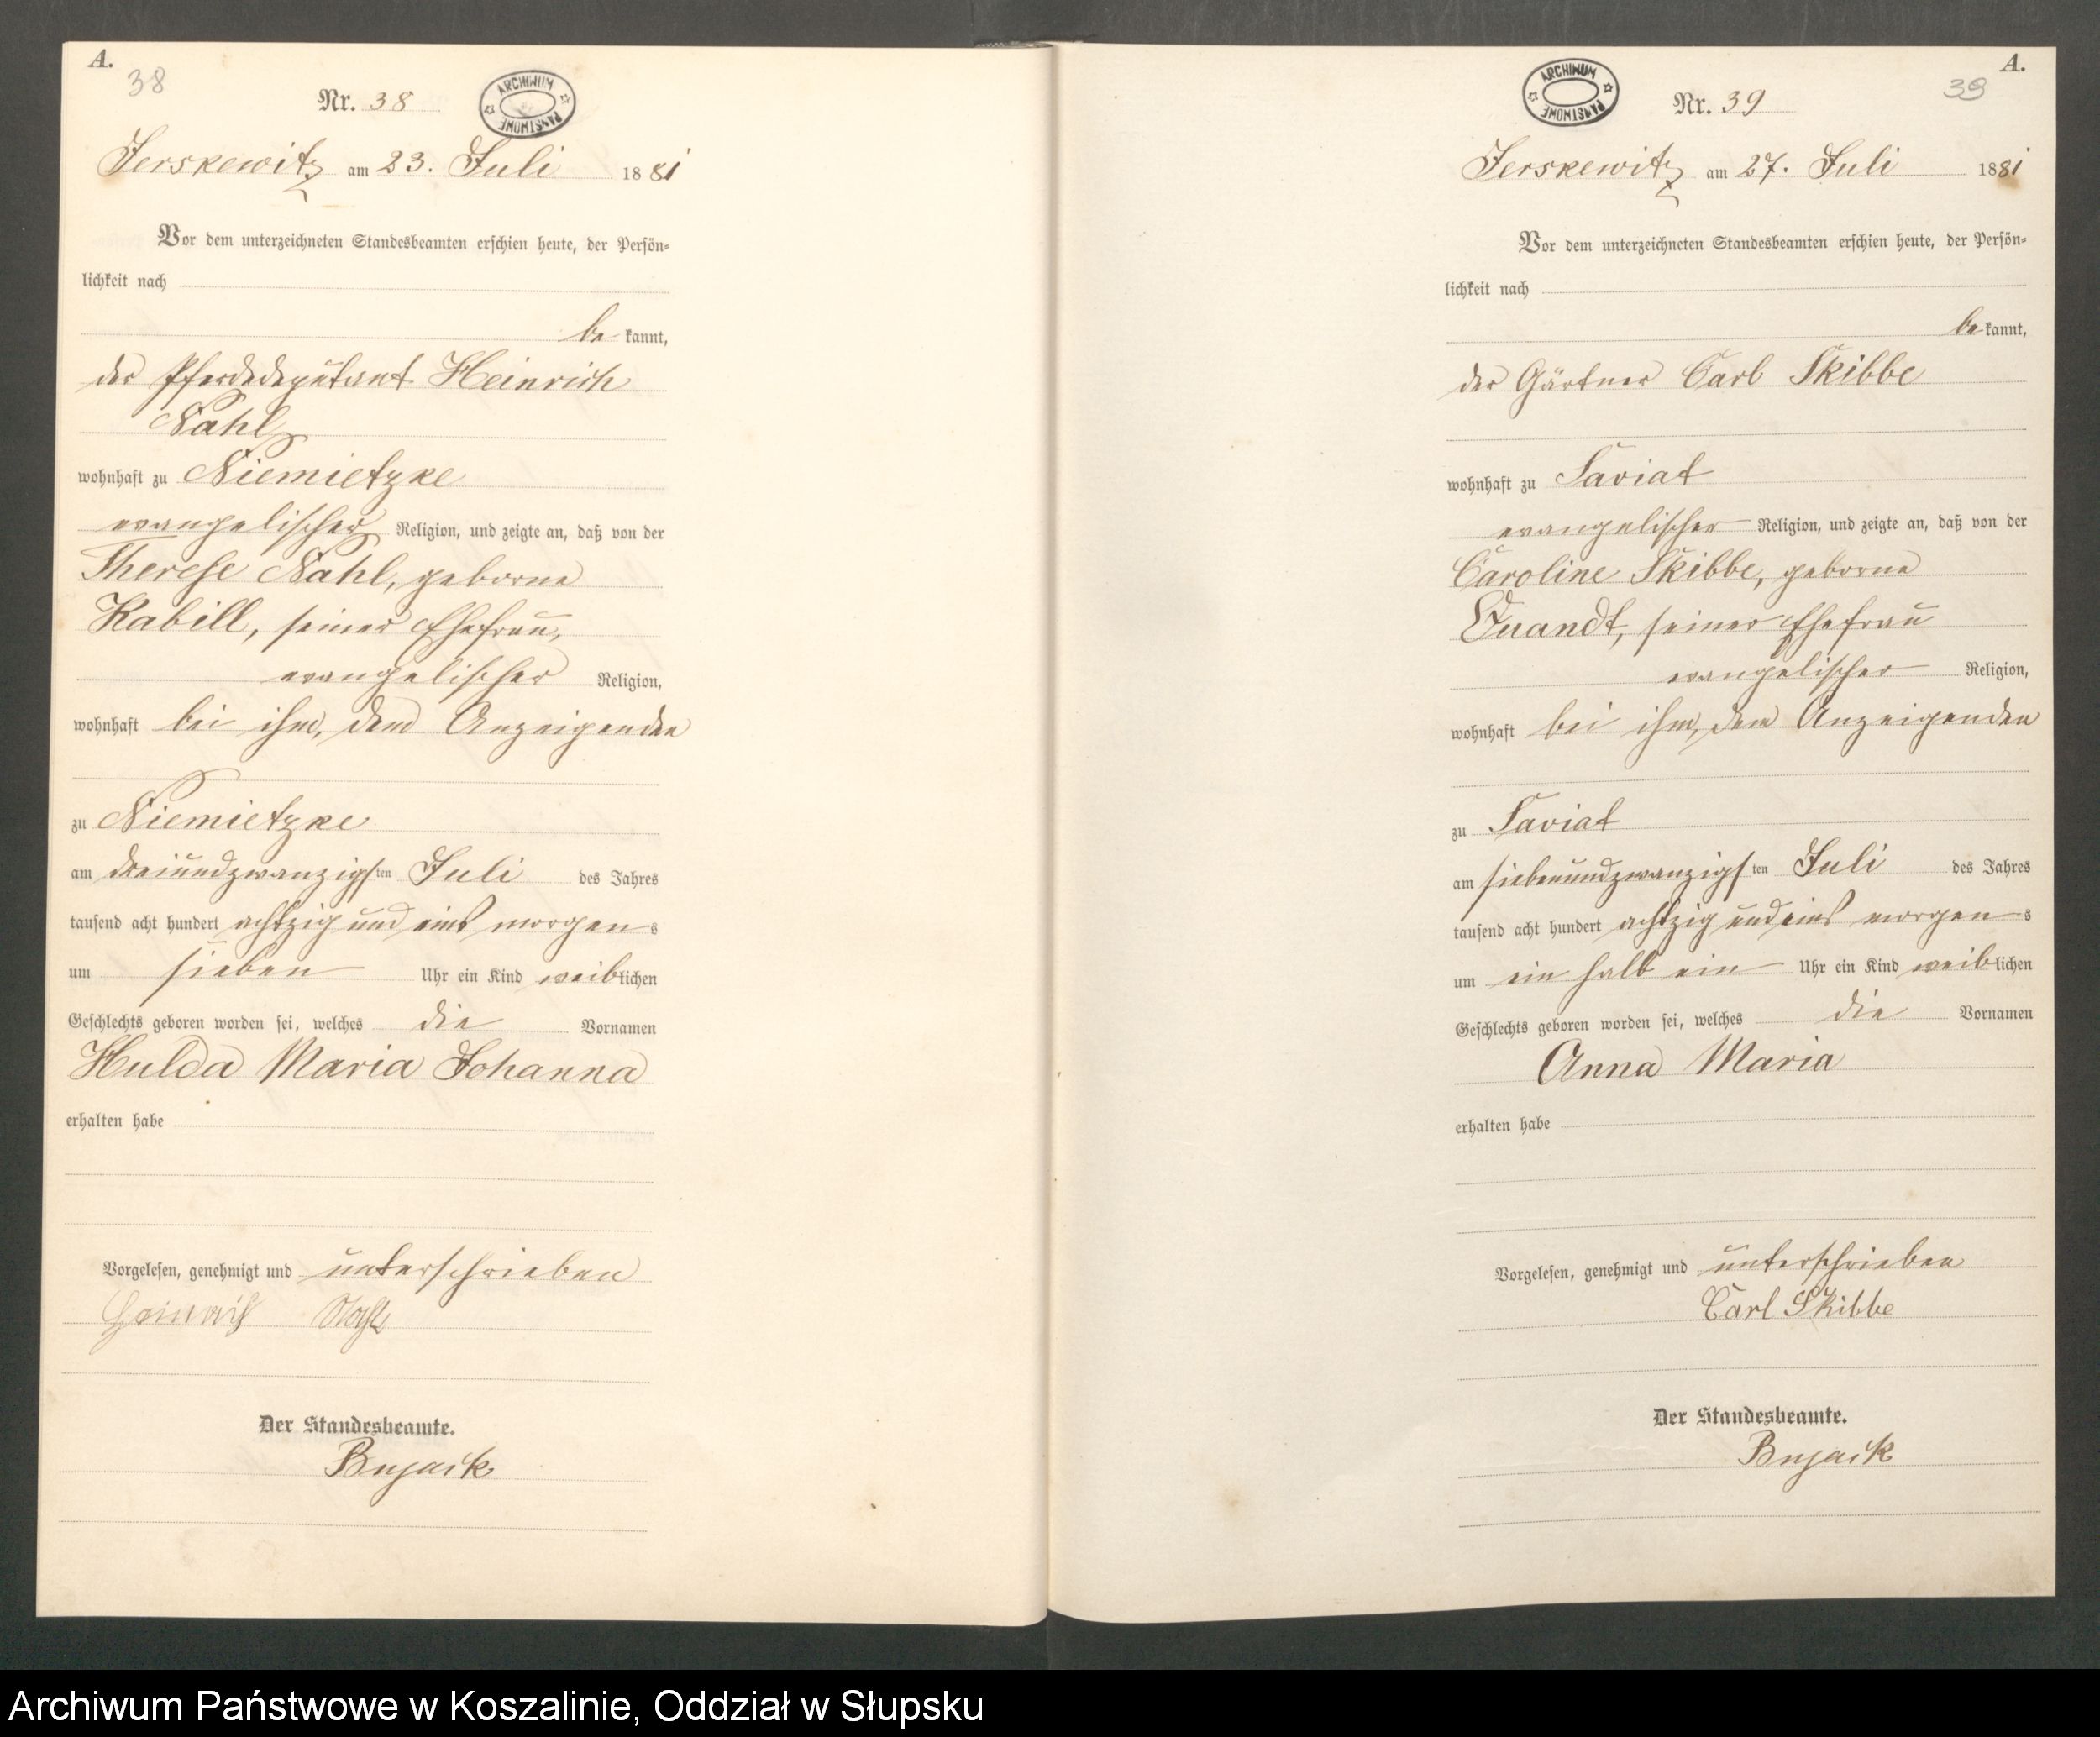 A.
38
Nr. 38
ARCHIWUM PAŃSTWOWE
Jerskewitz am 23. Juli 1881
Vor dem unterzeichneten Standesbeamten erschien heute, der Persön-
lichkeit nach
be kannt,
der Pferdedeputant Heinrich
Nahl
wohnhaft zu Niemietzke
evangelischer Religion, und zeigte an, daß von der
Therese Nahl, geborne
Kabill, seiner Ehefrau,
evangelischer Religion,
wohnhaft bei ihm, dem Anzeigenden
zu Niemietzke
am dreiundzwanzigsten Juli des Jahres
tausend acht hundert achtzig und eins morgens
um sieben Uhr ein Kind weiblichen
Geschlechts geboren worden sei, welches die Vornamen
Hulda Maria Johanna
erhalten habe
Vorgelesen, genehmigt und unterschrieben
Heinrich Nahl
Der Standesbeamte.
Bujack
A.
39
Nr. 39
ARCHIWUM PAŃSTWOWE
Jerskewitz am 27. Juli 1881
Vor dem unterzeichneten Standesbeamten erschien heute, der Persön-
lichkeit nach
be kannt,
der Gärtner Carl Skibbe
wohnhaft zu Saviat
evangelischer Religion, und zeigte an, daß von der
Caroline Skibbe, geborne
Quandt, seiner Ehefrau
evangelischer Religion,
wohnhaft bei ihm, dem Anzeigenden
zu Saviat
am siebenundzwanzigsten Juli des Jahres
tausend acht hundert achtzig und eins morgens
um ein halb ein Uhr ein Kind weiblichen
Geschlechts geboren worden sei, welches die Vornamen
Anna Maria
erhalten habe
Vorgelesen, genehmigt und unterschrieben
Carl Skibbe
Der Standesbeamte.
Bujack
Archiwum Państwowe w Koszalinie, Oddział w Słupsku